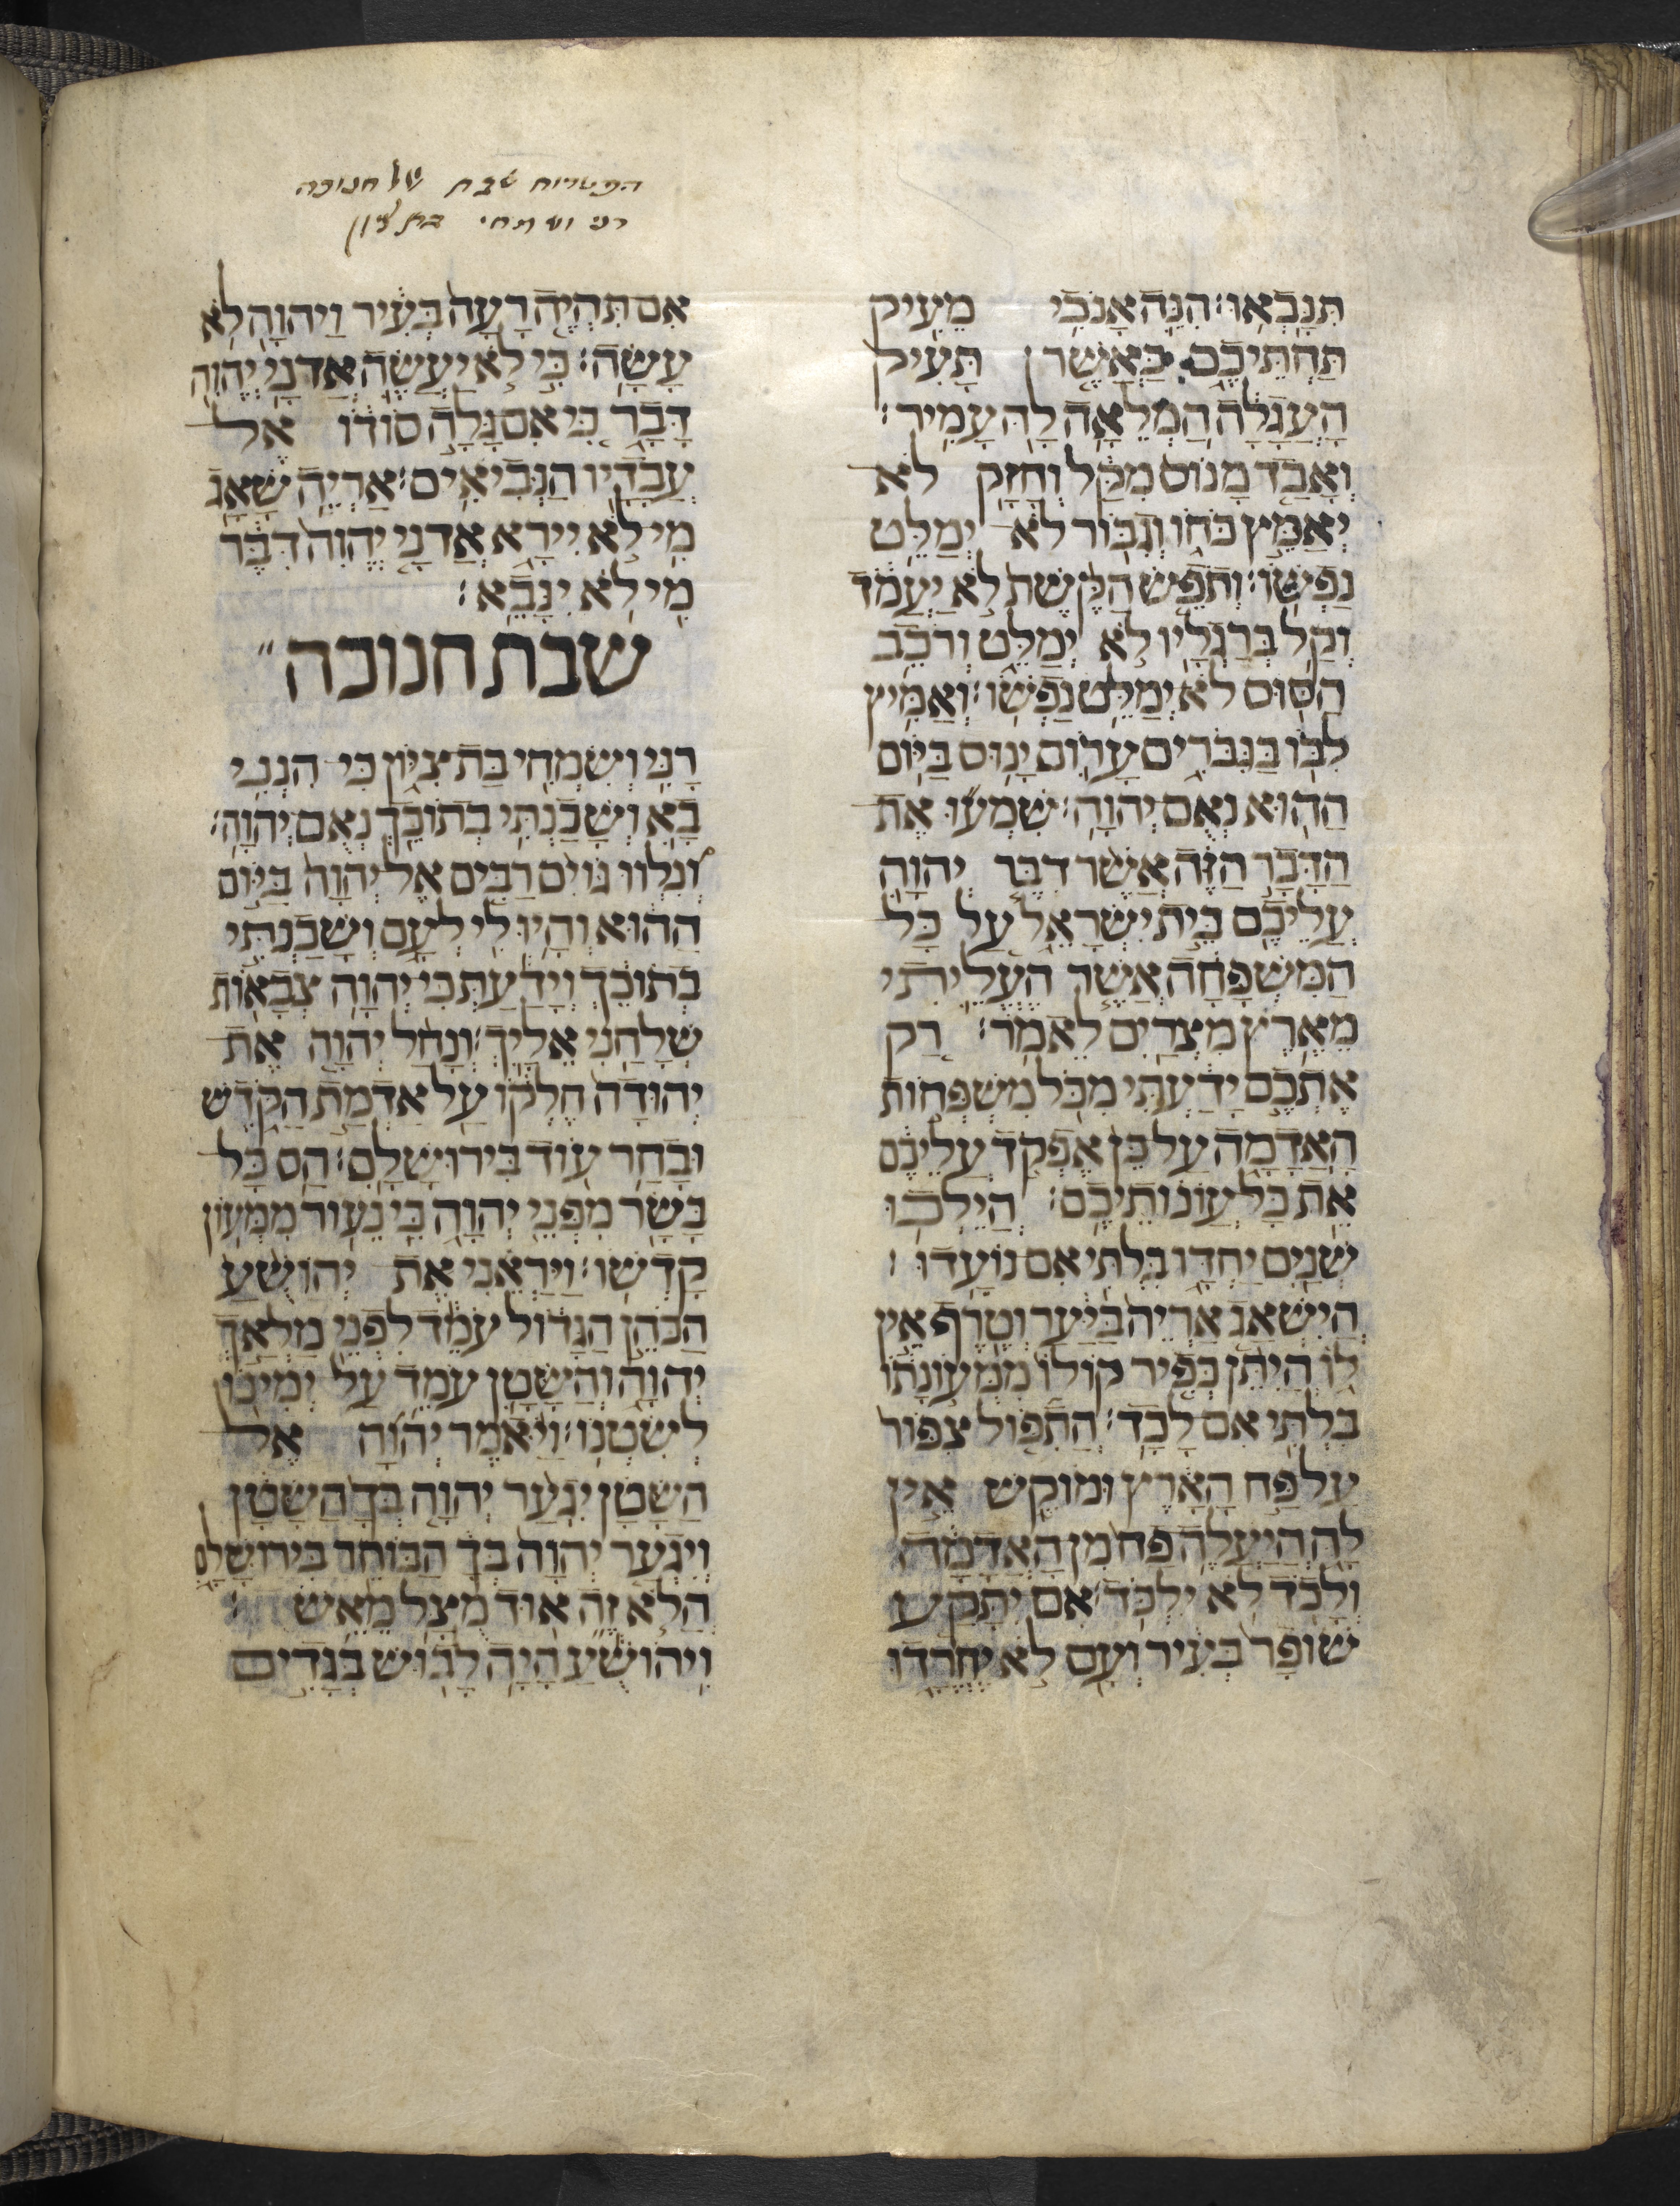 הפטרות שבת של חנוכה
רני ושמחי בת ציון
תִּנָּבְאוּ׃ הִנֵּה אָנֹכִי מֵעִיק
תַּחְתֵּיכֶם כַּאֲשֶׁר תָּעִיק
הָעֲגָלָה הַמְלֵאָה לָהּ עָמִיר׃
וְאָבַד מָנוֹס מִקָּל וְחָזָק לֹא
יְאַמֵּץ כֹּחוֹ וְגִבּוֹר לֹא יְמַלֵּט
נַפְשׁוֹ׃ וְתֹפֵשׂ הַקֶּשֶׁת לֹא יַעֲמֹד
וְקַל בְּרַגְלָיו לֹא יְמַלֵּט וְרֹכֵב
הַסּוּס לֹא יְמַלֵּט נַפְשׁוֹ׃ וְאַמִּיץ
לִבּוֹ בַּגִּבֹּרִים עָרוֹם יָנוּס בַּיּוֹם
הַהוּא נְאֻם יְהוָה׃ שִׁמְעוּ אֶת
הַדָּבָר הַזֶּה אֲשֶׁר דִּבֶּר יְהוָה
עֲלֵיכֶם בֵּית יִשְׂרָאֵל עַל כָּל
הַמִּשְׁפָּחָה אֲשֶׁר הֶעֱלֵיתִי
מֵאֶרֶץ מִצְרַיִם לֵאמֹר׃ רַק
אֶתְכֶם יָדַעְתִּי מִכֹּל מִשְׁפְּחוֹת
הָאֲדָמָה עַל כֵּן אֶפְקֹד עֲלֵיכֶם
אֵת כָּל עֲוֹנוֹתֵיכֶם׃ הֲיֵלְכוּ
שְׁנַיִם יַחְדָּו בִּלְתִּי אִם נוֹעָדוּ׃
הֲיִשְׁאַג אַרְיֵה בַּיַּעַר וְטֶרֶף אֵין
לוֹ הֲיִתֵּן כְּפִיר קוֹלוֹ מִמְּעֹנָתוֹ
בִּלְתִּי אִם לָכָד׃ הֲתִפּוֹל צִפּוֹר
עַל פַּח הָאָרֶץ וּמוֹקֵשׁ אֵין
לָהּ הֲיַעֲלֶה פַּח מִן הָאֲדָמָה
וְלָכוֹד לֹא יִלְכּוֹד׃ אִם יִתָּקַע
שׁוֹפָר בְּעִיר וְעָם לֹא יֶחֱרָדוּ
אִם תִּהְיֶה רָעָה בְּעִיר וַיהוָה לֹא
עָשָׂה׃ כִּי לֹא יַעֲשֶׂה אֲדֹנָי יֱהוִה
דָּבָר כִּי אִם גָּלָה סוֹדוֹ אֶל
עֲבָדָיו הַנְּבִיאִים׃ אַרְיֵה שָׁאָג
מִי לֹא יִירָא אֲדֹנָי יֱהוִה דִּבֶּר
מִי לֹא יִנָּבֵא׃
שבת חנוכה"
רָנִּי וְשִׂמְחִי בַּת צִיּוֹן כִּי הִנְנִי
בָא וְשָׁכַנְתִּי בְתוֹכֵךְ נְאֻם יְהוָה׃
וְנִלְווּ גוֹיִם רַבִּים אֶל יְהוָה בַּיּוֹם
הַהוּא וְהָיוּ לִי לְעָם וְשָׁכַנְתִּי
בְתוֹכֵךְ וְיָדַעַתְּ כִּי יְהוָה צְבָאוֹת
שְׁלָחַנִי אֵלָיִךְ׃ וְנָחַל יְהוָה אֶת
יְהוּדָה חֶלְקוֹ עַל אַדְמַת הַקֹּדֶשׁ
וּבָחַר עוֹד בִּירוּשָׁלִָם׃ הַס כָּל
בָּשָׂר מִפְּנֵי יְהוָה כִּי נֵעוֹר מִמְּעוֹן
קָדְשׁוֹ׃ וַיַּרְאֵנִי אֶת יְהוֹשֻׁעַ
הַכֹּהֵן הַגָּדוֹל עֹמֵד לִפְנֵי מַלְאַךְ
יְהוָה וְהַשָּׂטָן עֹמֵד עַל יְמִינוֹ
לְשִׂטְנוֹ׃ וַיֹּאמֶר יְהוָה אֶל
הַשָּׂטָן יִגְעַר יְהוָה בְּךָ הַשָּׂטָן
וְיִגְעַר יְהוָה בְּךָ הַבּוֹחֵר בִּירוּשָׁלִָם
הֲלֹא זֶה אוּד מֻצָּל מֵאֵשׁ׃
וִיהוֹשֻׁעַ הָיָה לָבוּשׁ בְּגָדִים